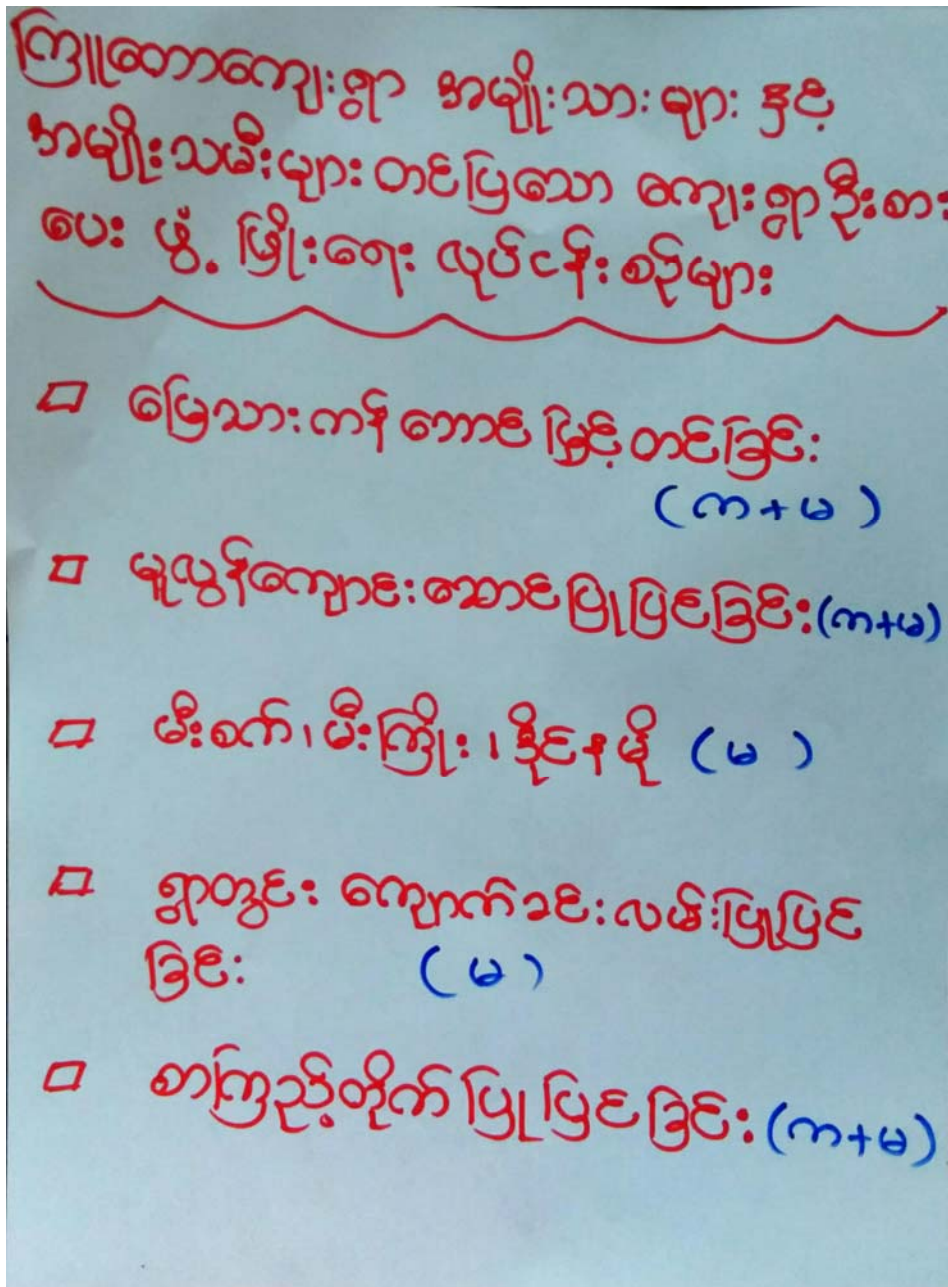 ကြူတောကျေးရွာ အမျိုးသားများ နှင့်
အမျိုးသမီးများတင်ပြသော ကျေးရွာဦးစား
ပေး ဖွံ့ ဖြိုးရေး လုပ်ငန်းစဉ်များ
□ မြေသားကန်ဘောင်မြှင့်တင်ခြင်း
(က+မ)
□ မူလွန်ကျောင်းဆောင်ပြုပြင်ခြင်း(က+မ)
□ မီးစက်၊မီးကြိုး၊ဒိုင်နမို (မ)
□ ရွာတွင်း ကျောက်ခင်းလမ်းပြုပြင်
ခြင်း (မ)
□ စာကြည့်တိုက်ပြုပြင်ခြင်း(က+မ)